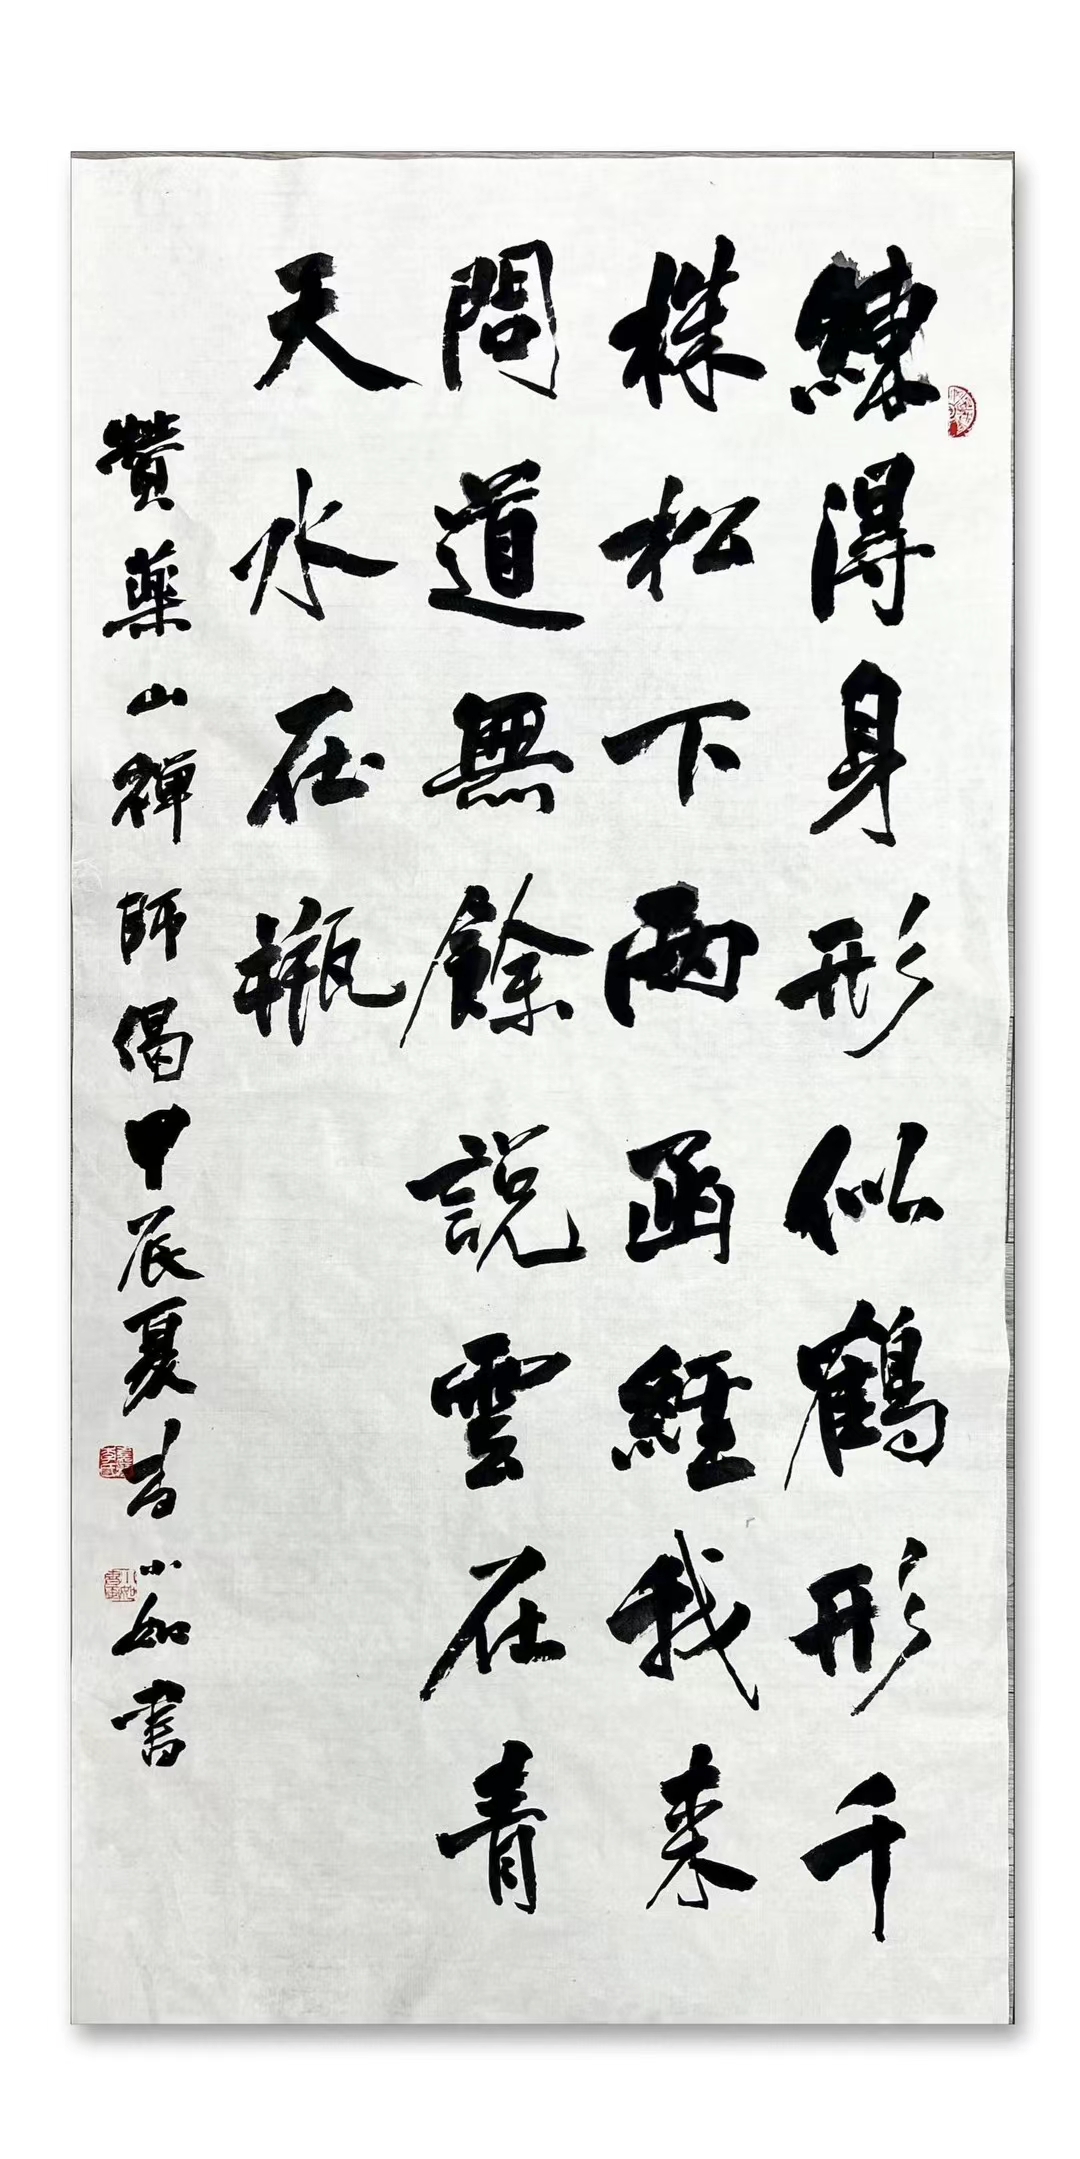 練得身形似鶴形千
株松下兩函經我來
問道無餘說雲在青
天水在瓶
贊藥山禪師偈甲辰夏吉小如書